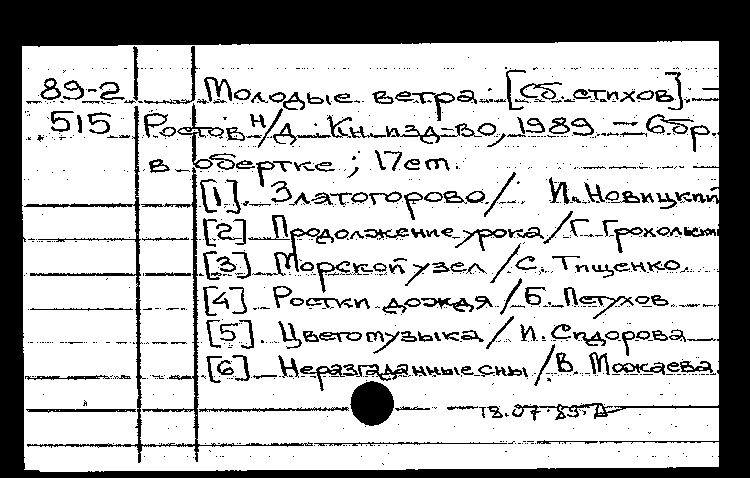 89-2 Молодые ветра : [Сб. стихов]. –
515 Ростов н/Д : Кн. изд-во, 1989. – 6 бр.
в обертке ; 17 см.
[1]. Златогорово / И. Новицкий
[2] Продолжение урока / Г. Грохольский
[3] Морской узел / С. Тищенко.
[4] Ростки дождя / Б. Петухов
[5]. Цветомузыка / И. Сидорова
[6]. Неразгаданные сны / В. Можаева.
18.07.89.